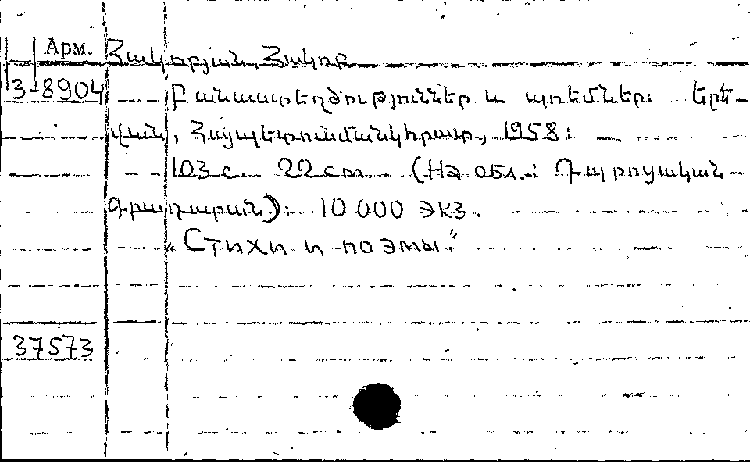 Арм. Հակոբյան, Հակոբ
3-8904 Բանաստեղծություններ և պոեմներ: Երե-
վան, Հայպետուսմանկհրատ, 1958:
103 с. 22 см (На обл.: Դպրոցական
գրադարան): 10 000 экз.
"Стихи и поэмы"
37573